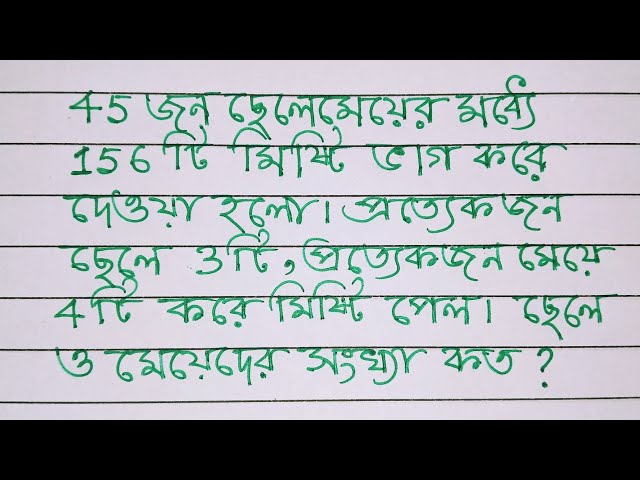 45 জন ছেলেমেয়ের মধ্যে
156টি মিষ্টি ভাগ করে
দেওয়া হলো। প্রত্যেকজন
ছেলে 3টি, প্রত্যেকজন মেয়ে
4টি করে মিষ্টি পেল। ছেলে
ও মেয়েদের সংখ্যা কত?